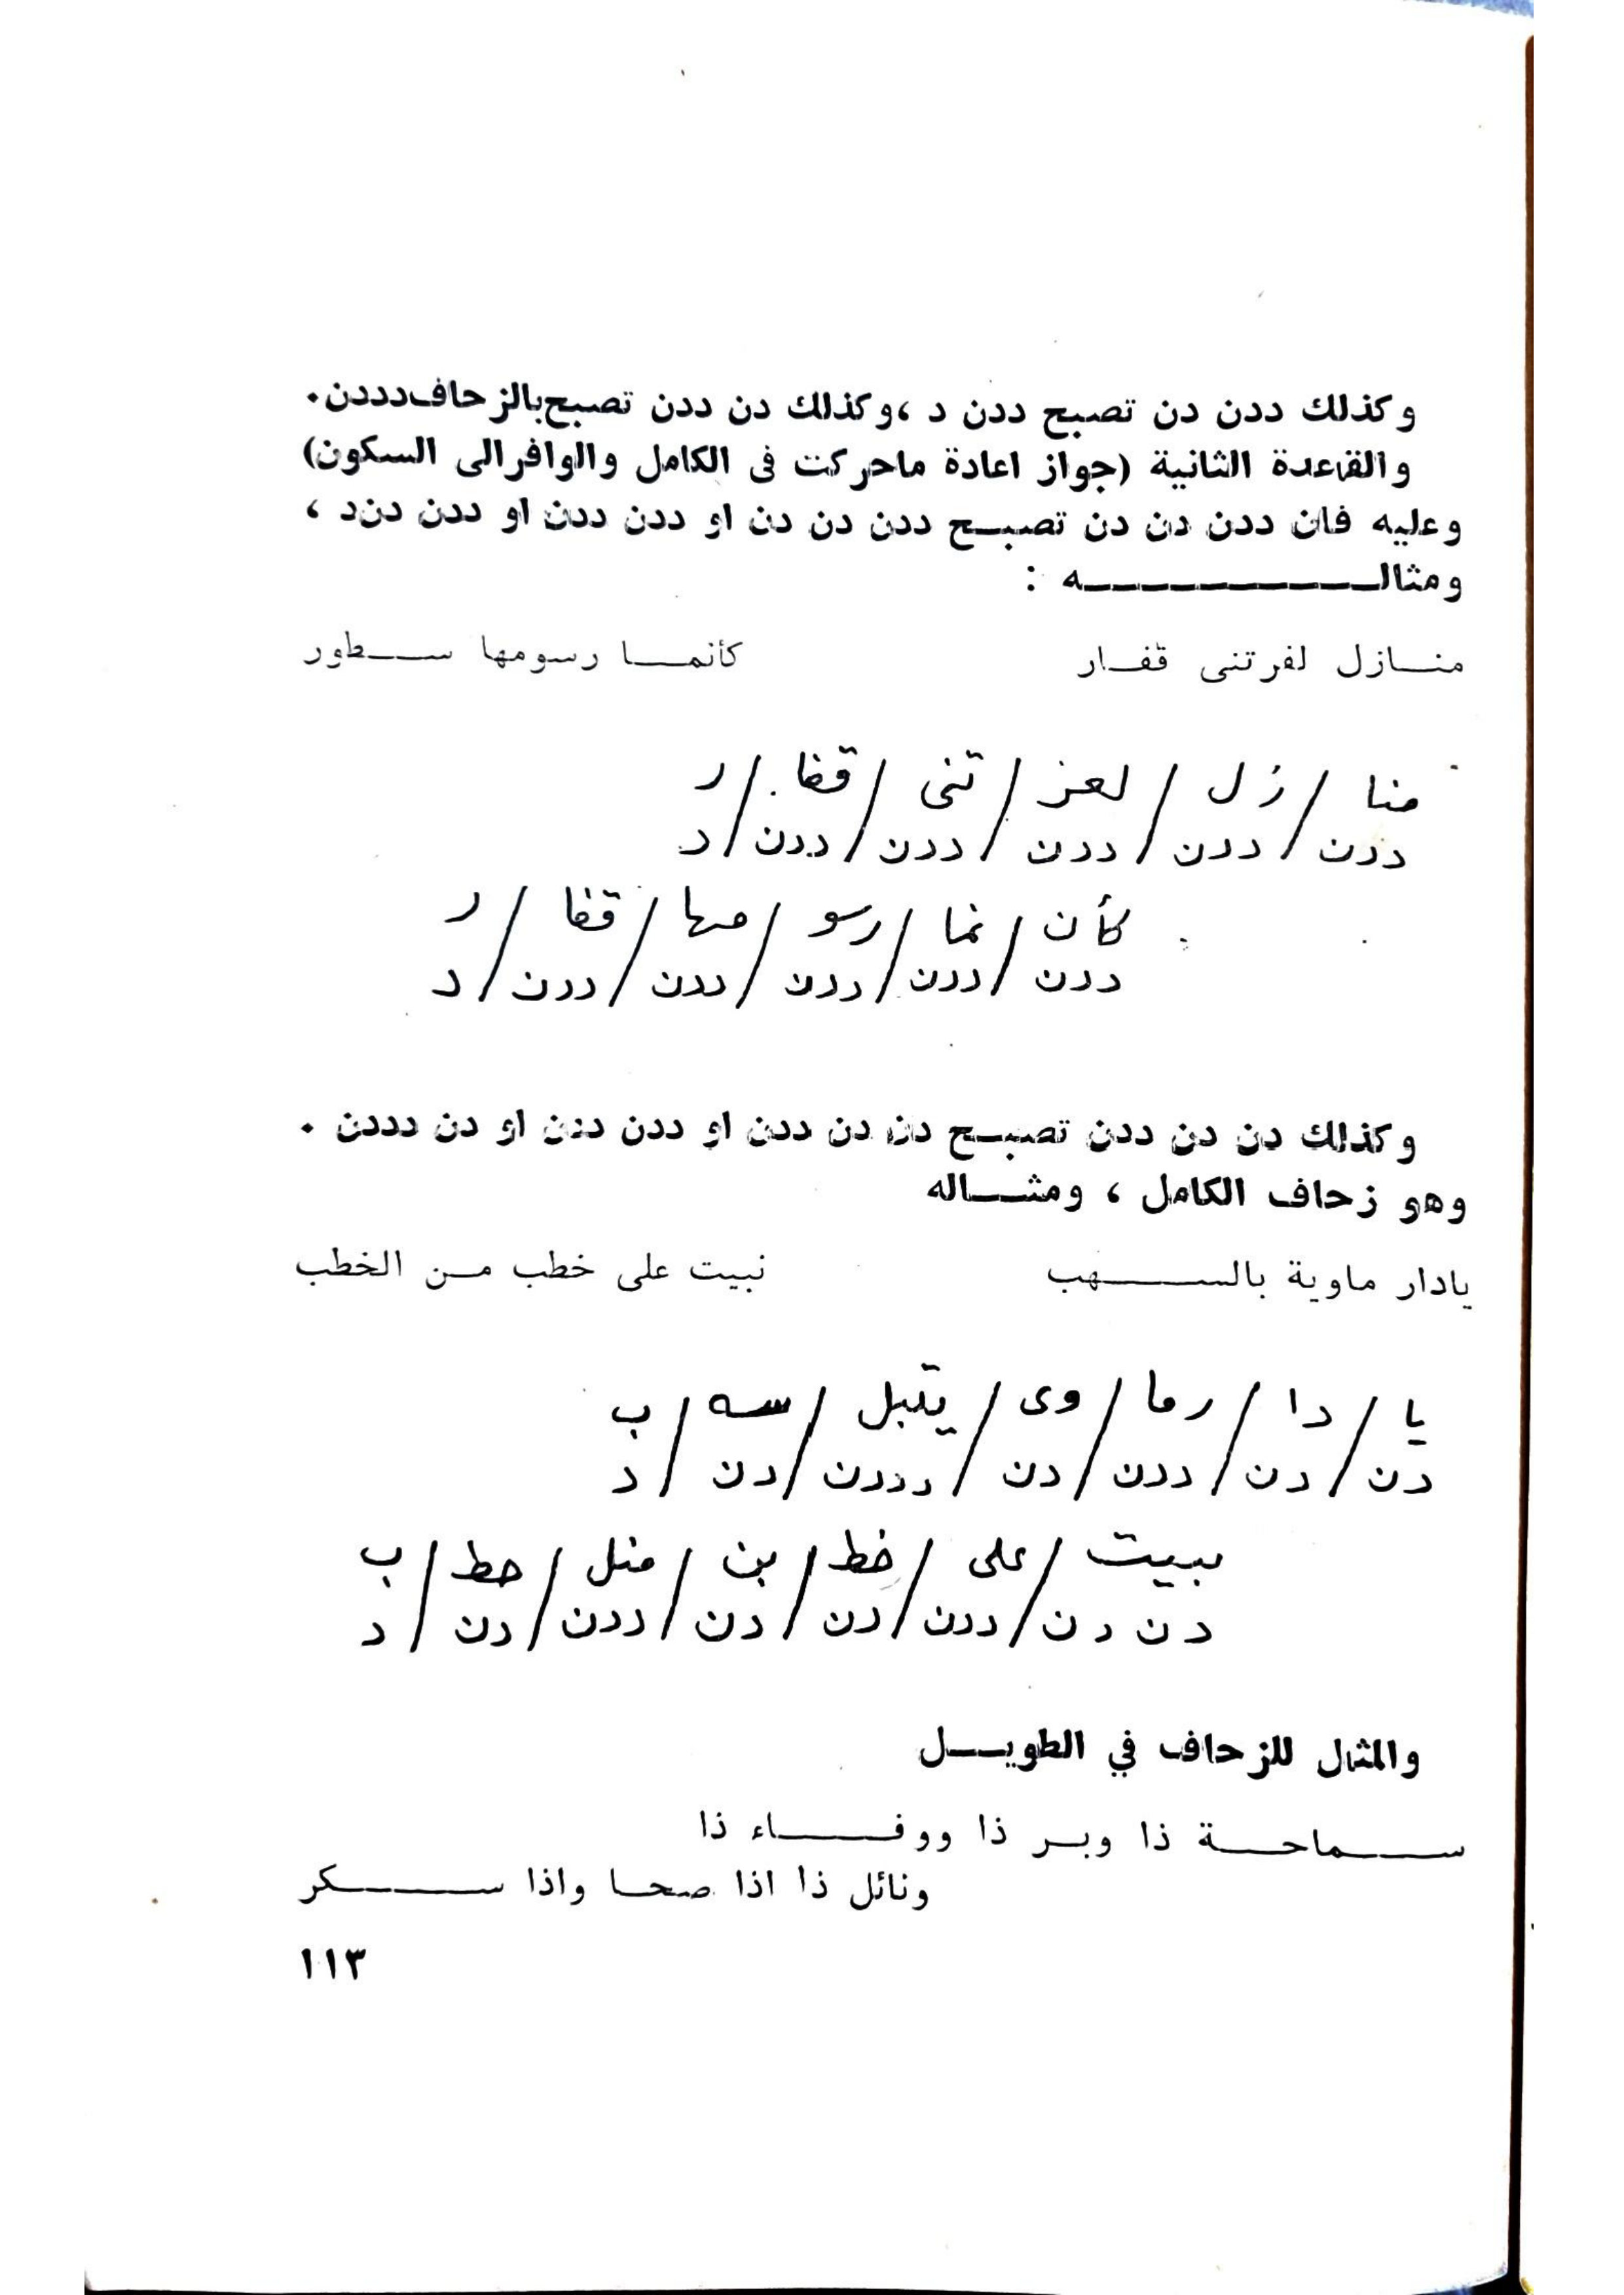 وكذلك ددن دن تصبح ددن د ،وكذلك دن ددن تصبح بالزحاف دددن.
والقاعدة الثانية (جواز اعادة ماحركت فى الكامل والوافر الى السكون)
وعليه فان ددن دن دن تصبح ددن دن دن او ددن ددن او ددن دند ،
ومثاله :
منازل لفرتنى قفار كأنما رسومها سطور
منا / زل / لعز / تنى / قفا / ر
ددن / ددن / ددن / ددن / ددن / د
كأن / نما / رسو / مها / قفا / ر
ددن / ددن / ددن / ددن / ددن / د
وكذلك دن دن ددن تصبح دن دن ددن او ددن ددن او دن دددن .
وهو زحاف الكامل ، ومثاله
يادار ماوية بالسهب نبيت على خطب من الخطب
يا / دا / رما / وى / يتبل / سه / ب
دن / دن / ددن / دن / دددن / دن / د
ببيت / على / خط / بن / منل / حط / ب
دن دن / ددن / دن / دن / ددن / دن / د
والمثال للزحاف في الطويل
سماحة ذا وبر ذا ووفاء ذا
ونائل ذا اذا صحا واذا سكر
١١٣